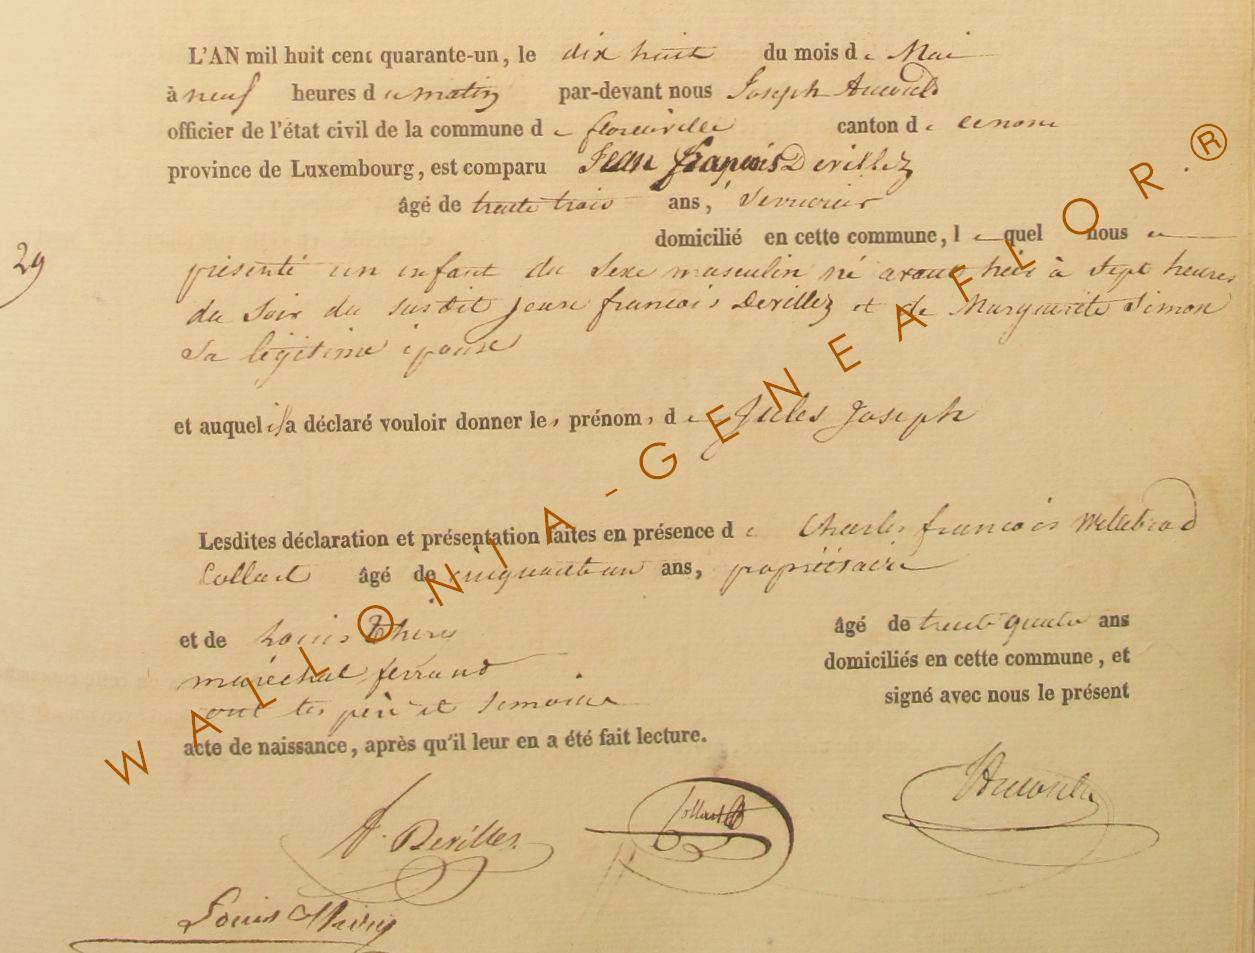 L'AN mil huit cent quarante-un, le dix huit du mois de Mai
à neuf heures du matin par-devant nous Joseph
officier de l'état civil de la commune de florenville canton de
province de Luxembourg, est comparu Jean françois Devillez
âgé de trente trois ans, Serrurier
domicilié en cette commune, lequel nous a
29
présenté un enfant du Sexe masculin né avant hier à Sept heures
du Soir du susdit jean francois Devillez et de Marguerite Simon
Sa légitime épouse
et auquel il a déclaré vouloir donner les prénoms de Jules Joseph
Lesdites déclaration et présentation faites en présence de Charles francois Willebrod
Collart âgé de cinquante un ans, propriétaire
et de Louis Thiry âgé de trente quatre ans
maréchal ferrand domiciliés en cette commune, et
ont les père et temoins signé avec nous le présent
acte de naissance, après qu'il leur en a été fait lecture.
Devillez
Collart
Louis Thiry
WALLONIA-GENEAFLOR.®